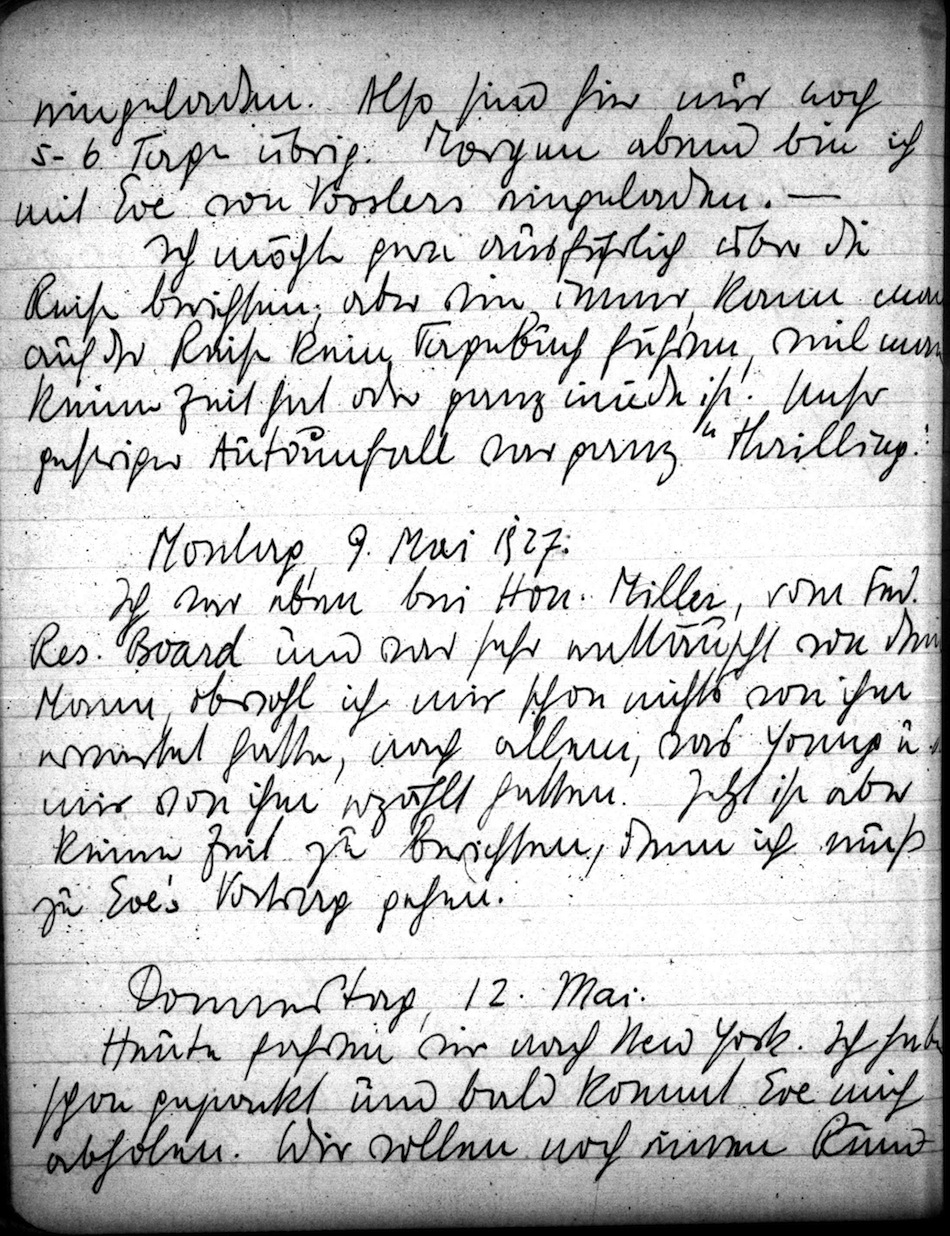 eingeladen. Also sind hier nur noch
5-6 Tage übrig. Morgen abend bin ich
mit Eve von Vosslers eingeladen. —
Ich möchte gern ausführlich über die
Reise berichten; aber wie immer, kann man
auf der Reise kein Tagebuch führen, weil man
keine Zeit hat oder ganz müde ist. Unser
gestriger Autounfall war ganz "thrilling!
Montag, 9. Mai 1927.
Ich war eben bei Hon. Miller, vom Fed.
Res. Board und war sehr enttäuscht von dem
Mann, obwohl ich mir schon nichts von ihm
erwartet hatte, nach allem, was Young u.
mir von ihm erzählt hatten. Jetzt ist aber
keine Zeit zu berichten, denn ich muß
zu Eve's Vortrag gehen.
Donnerstag, 12. Mai.
Heute fahren wir nach New York. Ich habe
schon gepackt und bald kommt Eve mich
abholen. Wir wollen noch einen Rund